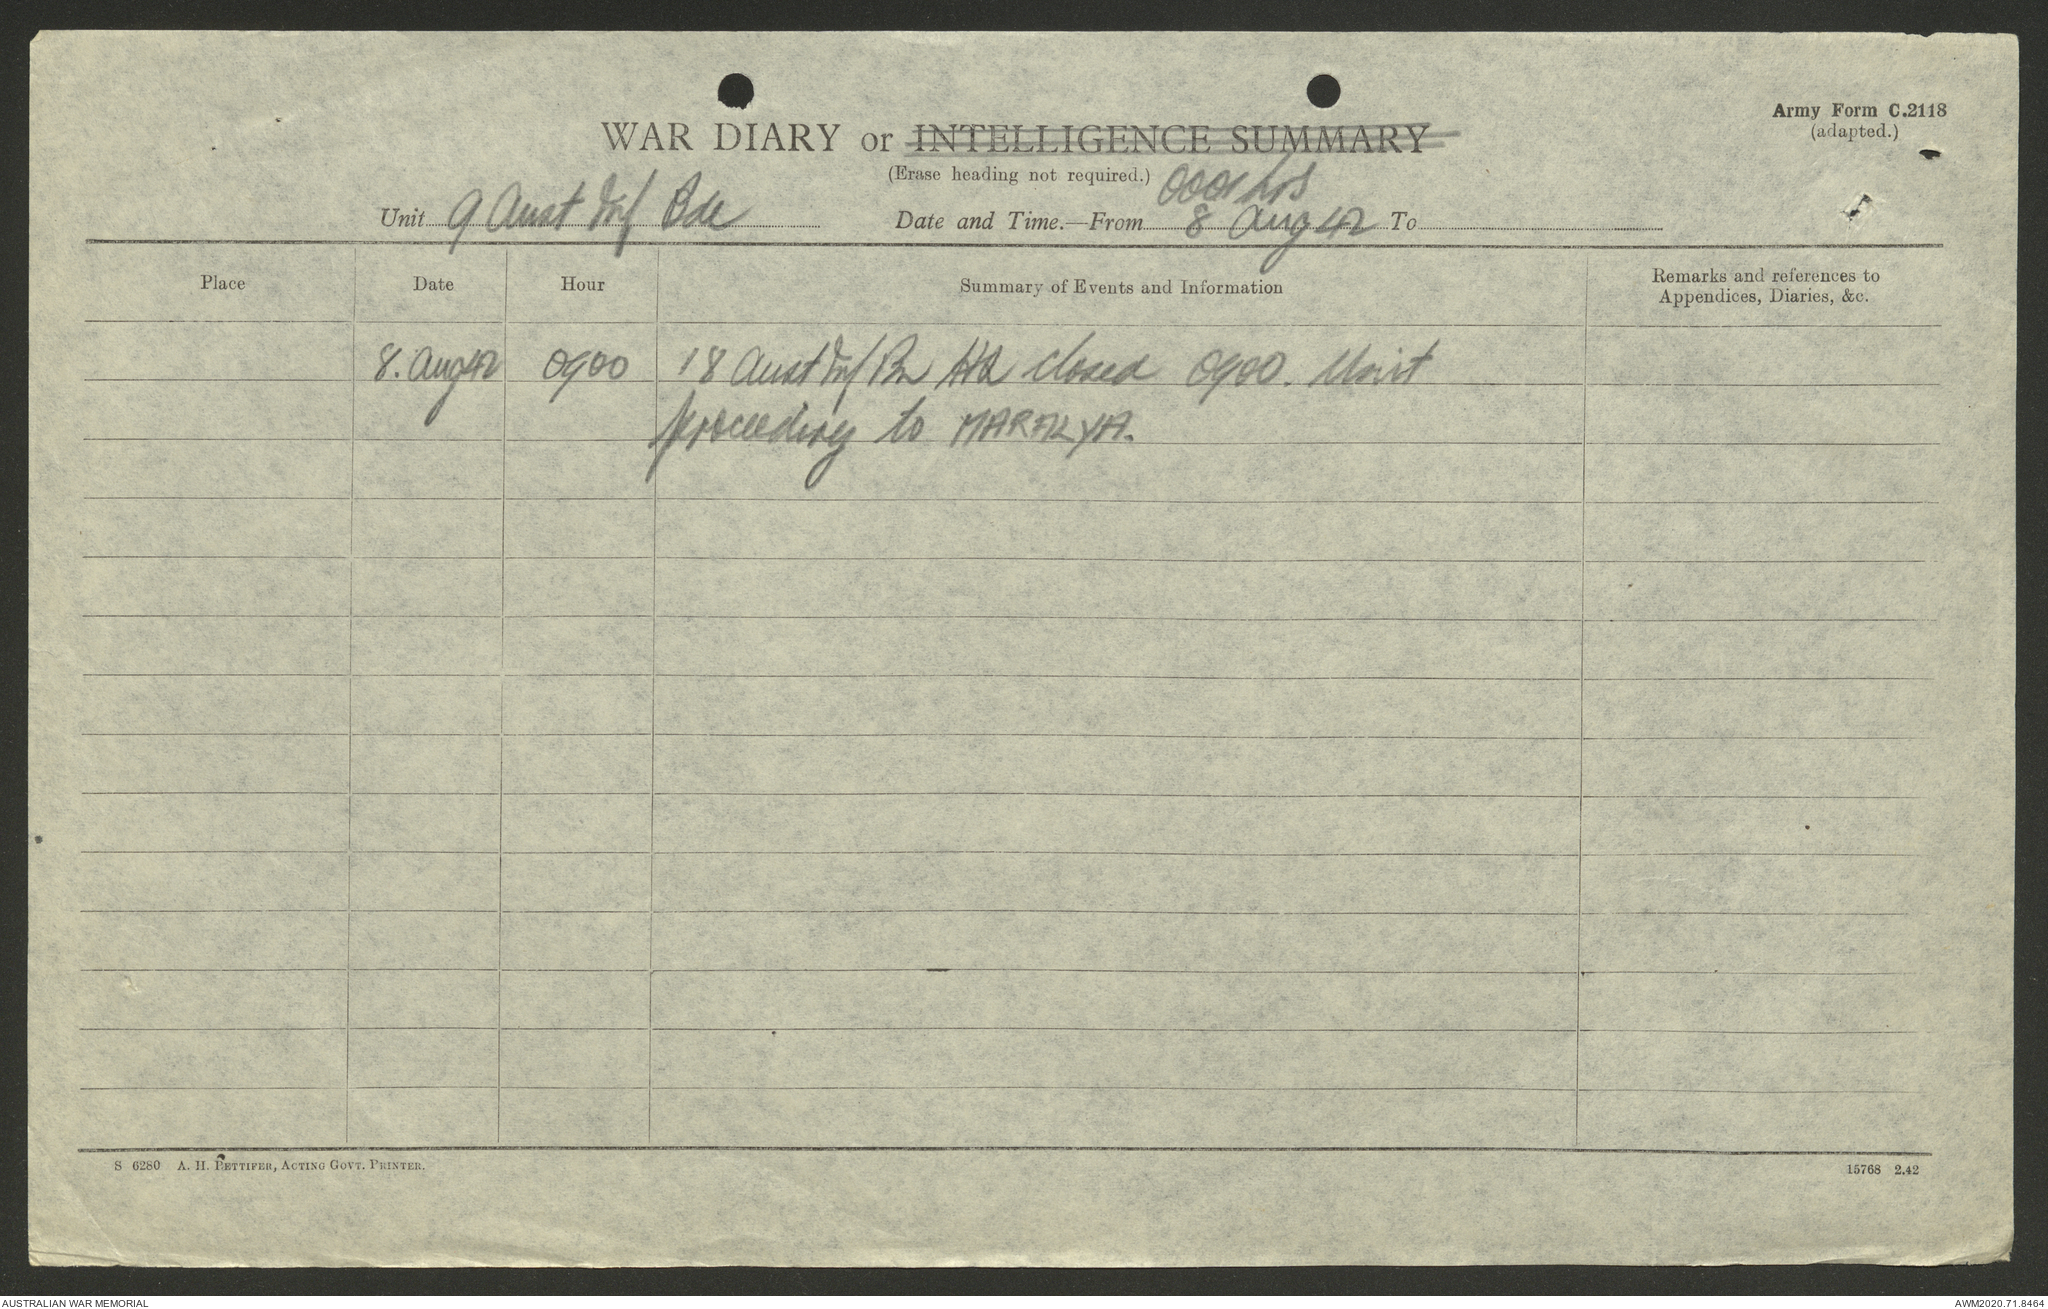 Army Form C.2118
(adapted.)
WAR DIARY or INTELLIGENCE SUMMARY
(Erase heading not required.)
0001 hrs
Unit 9 Aust Inf Bde Date and Time.—From 8 Aug 42 To
Place Date Hour Summary of Events and Information Remarks and references to
Appendices, Diaries, &c.
8. Aug 42 0900 18 Aust Inf Bn HQ closed 0900. Unit
proceeding to MARALYA.
S 6280 A. H. PETTIFER, ACTING GOVT. PRINTER.
15768 2.42
AUSTRALIAN WAR MEMORIAL
AWM2020.71.8464